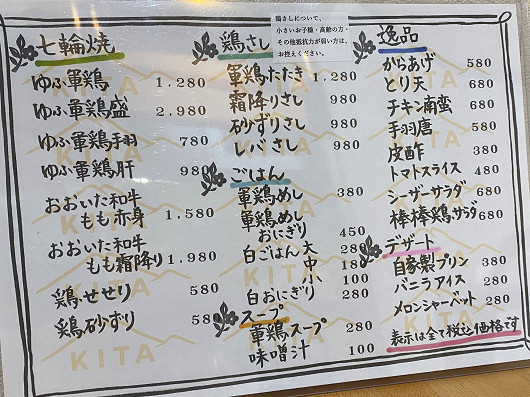 七輪焼
ゆふ軍鶏 1,280
ゆふ軍鶏盛 2,980
ゆふ軍鶏手羽 780
ゆふ軍鶏肝 980
おおいた和牛
もも赤身 1,580
おおいた和牛
もも霜降り 1,980
鶏せせり 580
鶏砂ずり 580
鶏さし
鶏さしについて、
小さいお子様・高齢の方・
その他抵抗力が弱い方は、
お控えください。
軍鶏たたき 1,280
霜降りさし 980
砂ずりさし 980
レバさし 980
ごはん
軍鶏めし 380
軍鶏めし
おにぎり 450
白ごはん 大 280
中 180
小 100
白おにぎり 280
スープ
軍鶏スープ 280
味噌汁 100
逸品
からあげ 580
とり天 680
チキン南蛮 680
手羽唐 580
皮酢 380
トマトスライス 480
シーザーサラダ 680
棒棒鶏サラダ 680
デザート
自家製プリン 380
バニラアイス 280
メロンシャーベット 280
表示は全て税込価格です
KITA
KITA
KITA
KITA
KITA
KITA